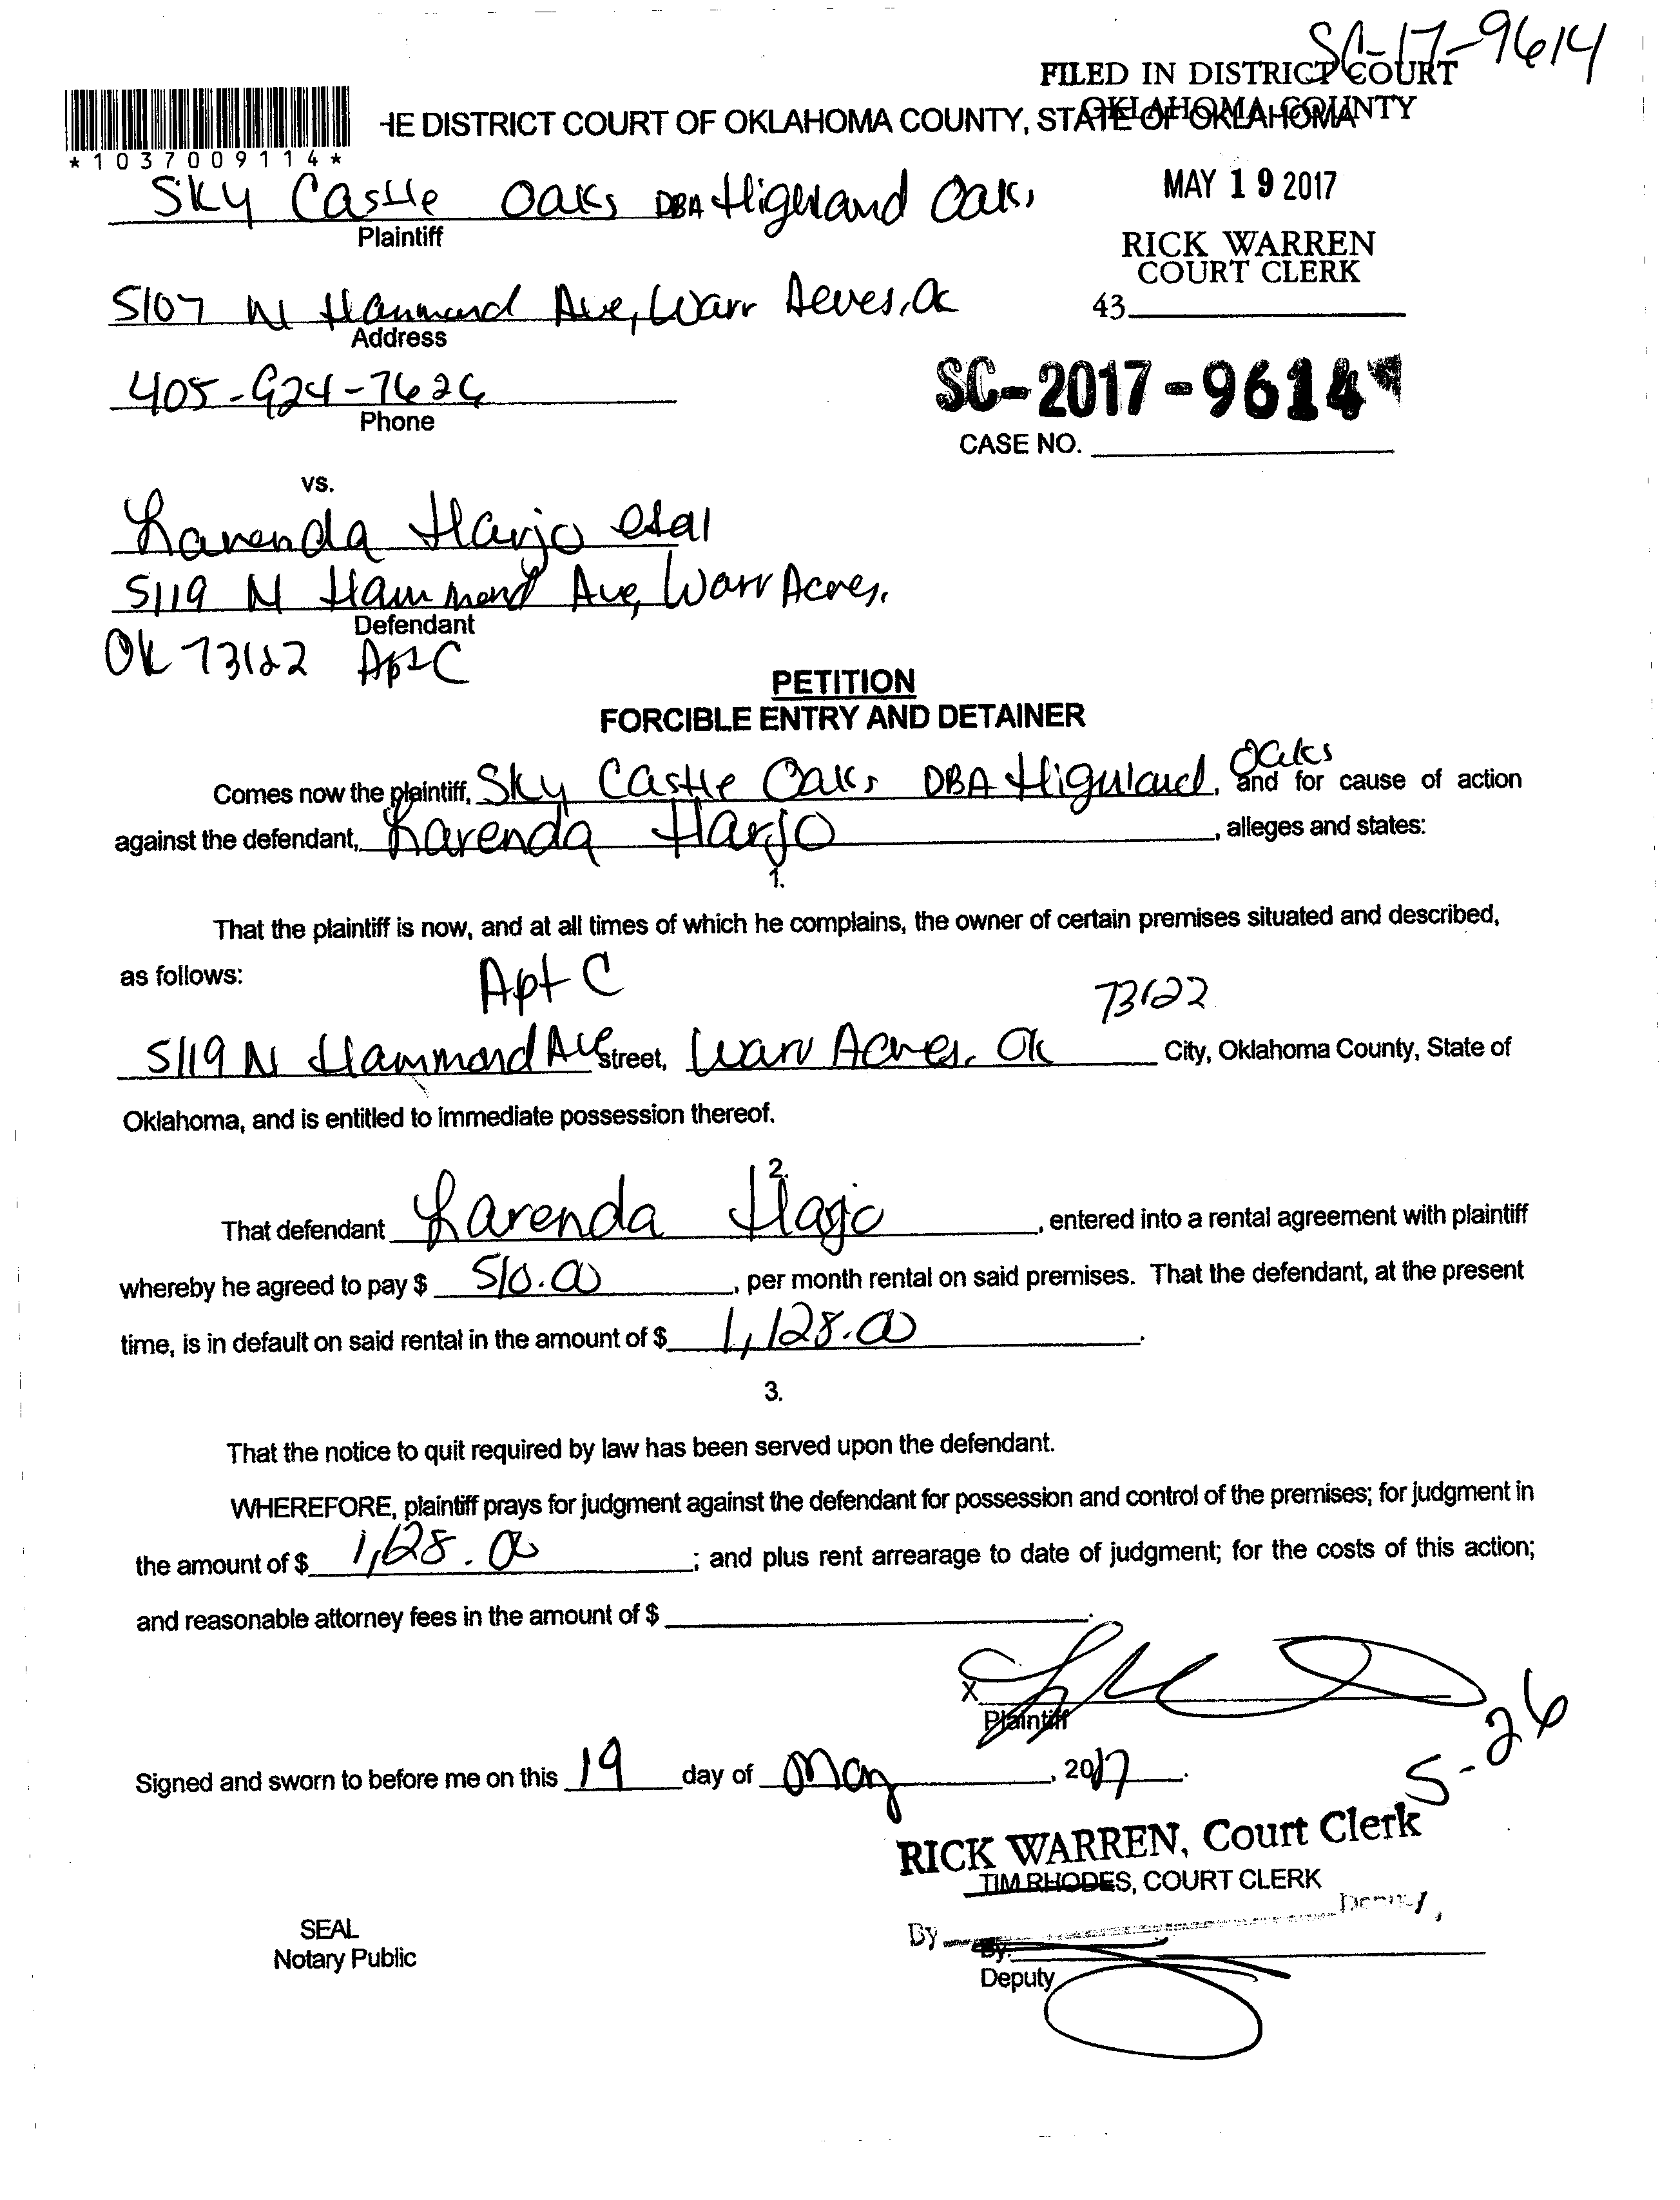 SC-17-9614
FILED IN DISTRICT COURT
OKLAHOMA COUNTY
HE DISTRICT COURT OF OKLAHOMA COUNTY, STATE OF OKLAHOMA
*1037009114*
MAY 19 2017
Sky Castle Oaks DBA Highland Oaks
Plaintiff
RICK WARREN
COURT CLERK
43
5107 N Hammond Ave, Warr Acres, Ok
Address
405-924-7626
Phone
SC-2017-9614
CASE NO.
vs.
Larenda Harjo etal
5119 N Hammond Ave, Warr Acres,
Defendant
Ok 73122 Apt C
PETITION
FORCIBLE ENTRY AND DETAINER
Comes now the plaintiff, Sky Castle Oaks DBA Highland Oaks, and for cause of action
against the defendant, Larenda Harjo, alleges and states:
1.
That the plaintiff is now, and at all times of which he complains, the owner of certain premises situated and described,
as follows:
Apt C
73122
5119 N Hammond Ave Street, Warr Acres, Ok City, Oklahoma County, State of
Oklahoma, and is entitled to immediate possession thereof.
2.
That defendant Larenda Hajo, entered into a rental agreement with plaintiff
whereby he agreed to pay $ 510.00, per month rental on said premises. That the defendant, at the present
time, is in default on said rental in the amount of $ 1,128.00.
3.
That the notice to quit required by law has been served upon the defendant.
WHEREFORE, plaintiff prays for judgment against the defendant for possession and control of the premises; for judgment in
the amount of $ 1,128.00; and plus rent arrearage to date of judgment; for the costs of this action;
and reasonable attorney fees in the amount of $
X
Plaintiff
5-26
Signed and sworn to before me on this 19 day of May, 2017.
RICK WARREN, Court Clerk
TIM RHODES, COURT CLERK
By Deputy
SEAL
Notary Public
By:
Deputy